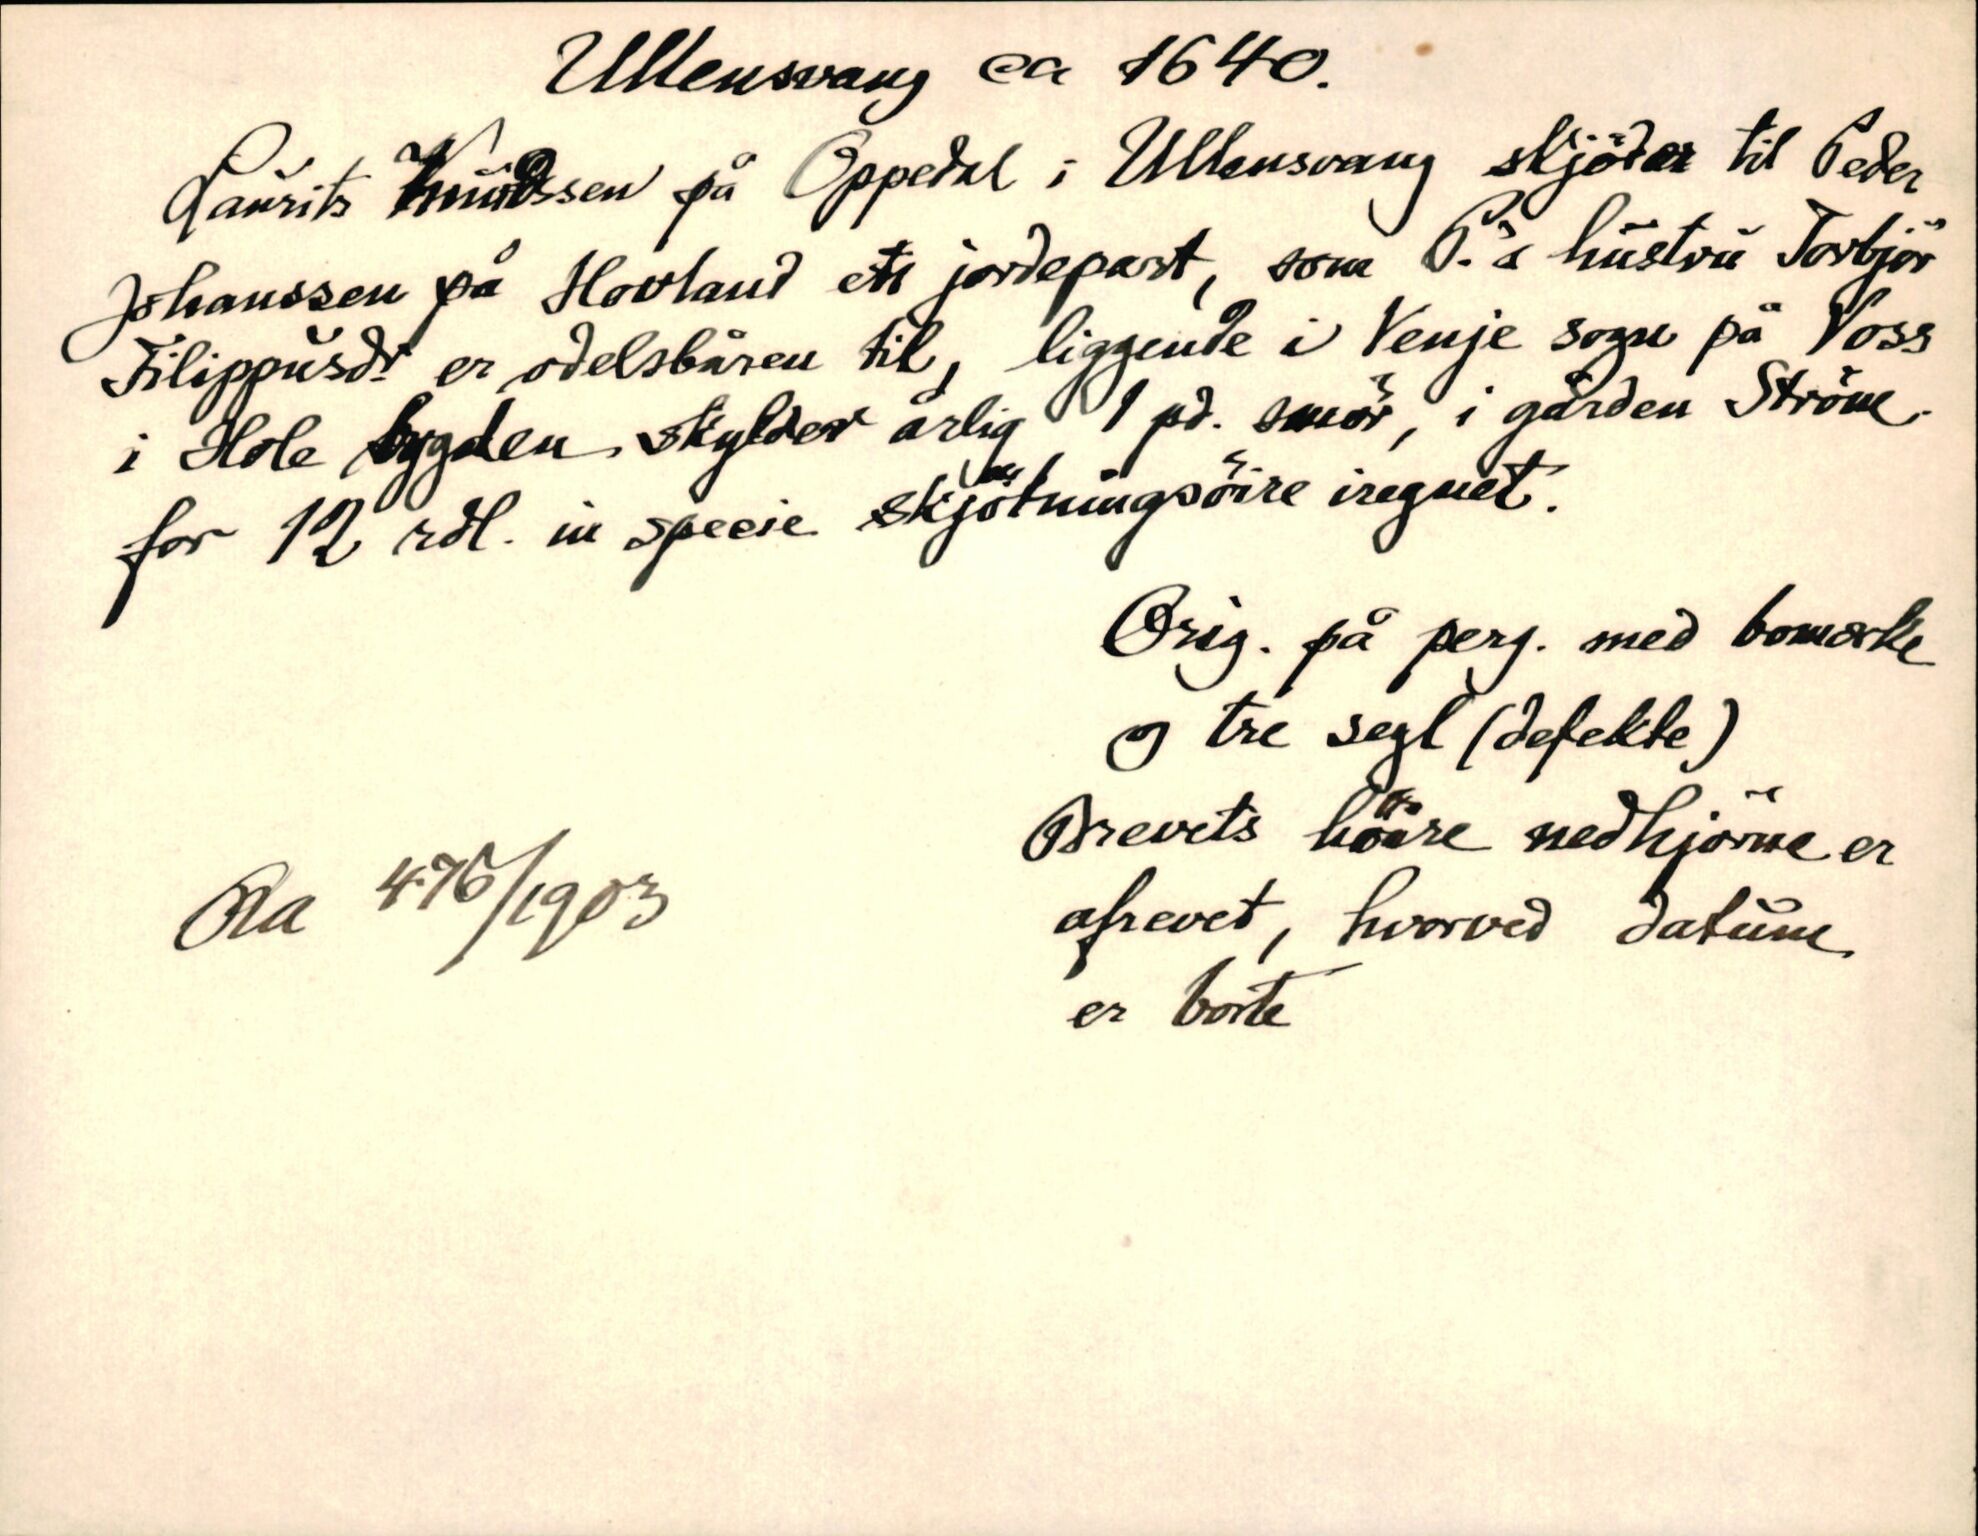 Ullensvang ca 1640.
Laurits Knudssen på Oppedal i Ullensvang skjöder til Peder
Johanssen på Hovland en jordepart, som P.'s hustru Torbjör
Filippusdr er odelsbåren til, liggende i Venje sogn på Voss
i Hole bygden, skylder årlig 1 pd. smör, i gården Ströme
for 12 rdl. in specie skjötningsöire iregnet.
Orig. på perg. med bomerke
og tre segl (defekte)
Brevets höire nedhjörne er
afrevet, hvorved datum
er borte
Ra 476/1903